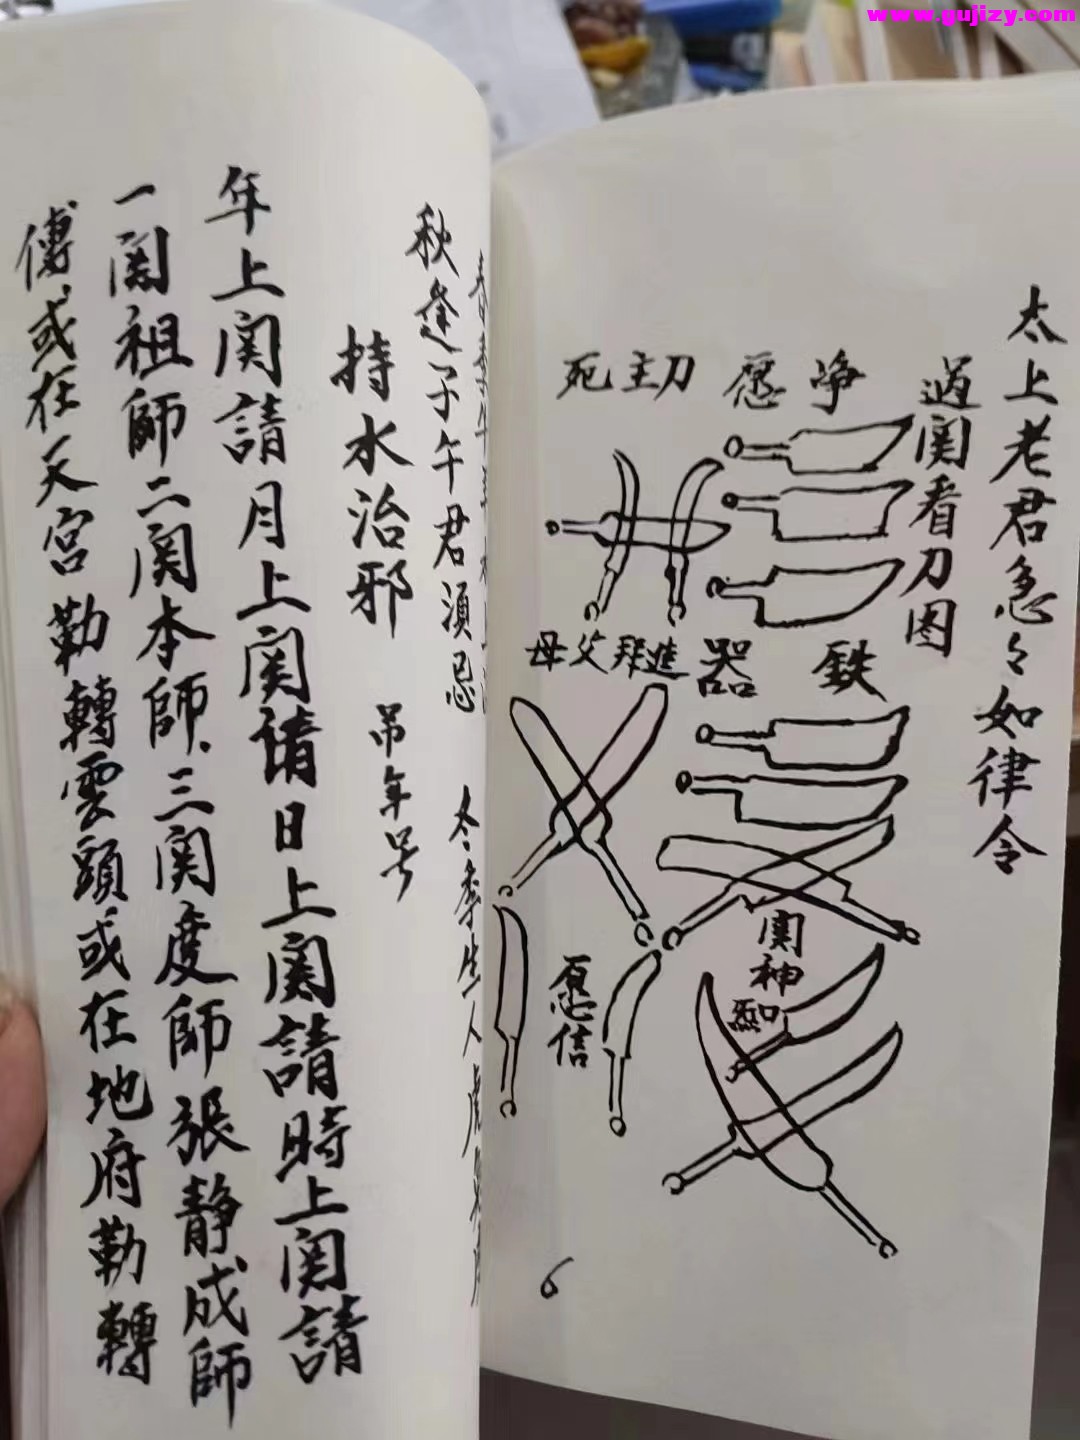 www.gujizy.com
太上老君急々如律令
過関看刀图
净愿
主刀死
鉄器
進拜父母
関神
愿信
6
秋逢子午君須忌
冬季生人
持水治邪
吊年号
年上関請月上関请日上関請時上関請
一関祖師二関本師、三関度師張静成師
傅或在天宮勒轉雲頭或在地府勒轉